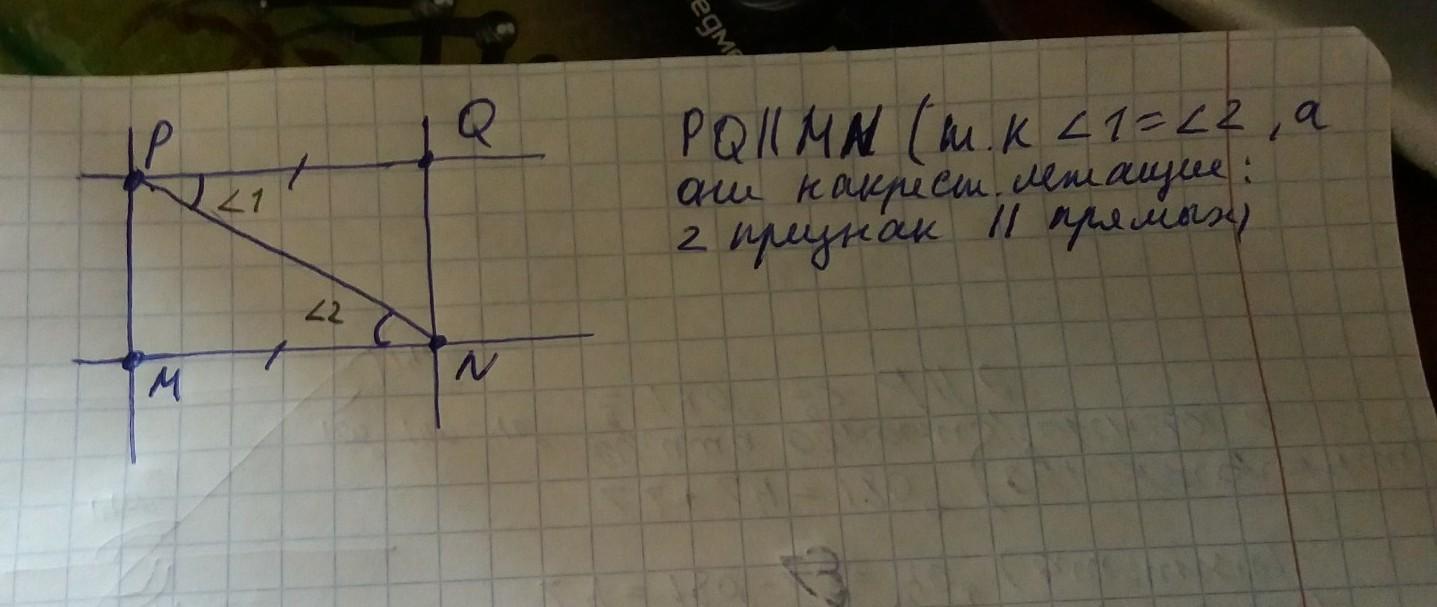 едме
P
Q
∠1
∠2
M
N
PQ||MN (т.к ∠1=∠2, а
они накрест. лежащие:
2 признак || прямых)